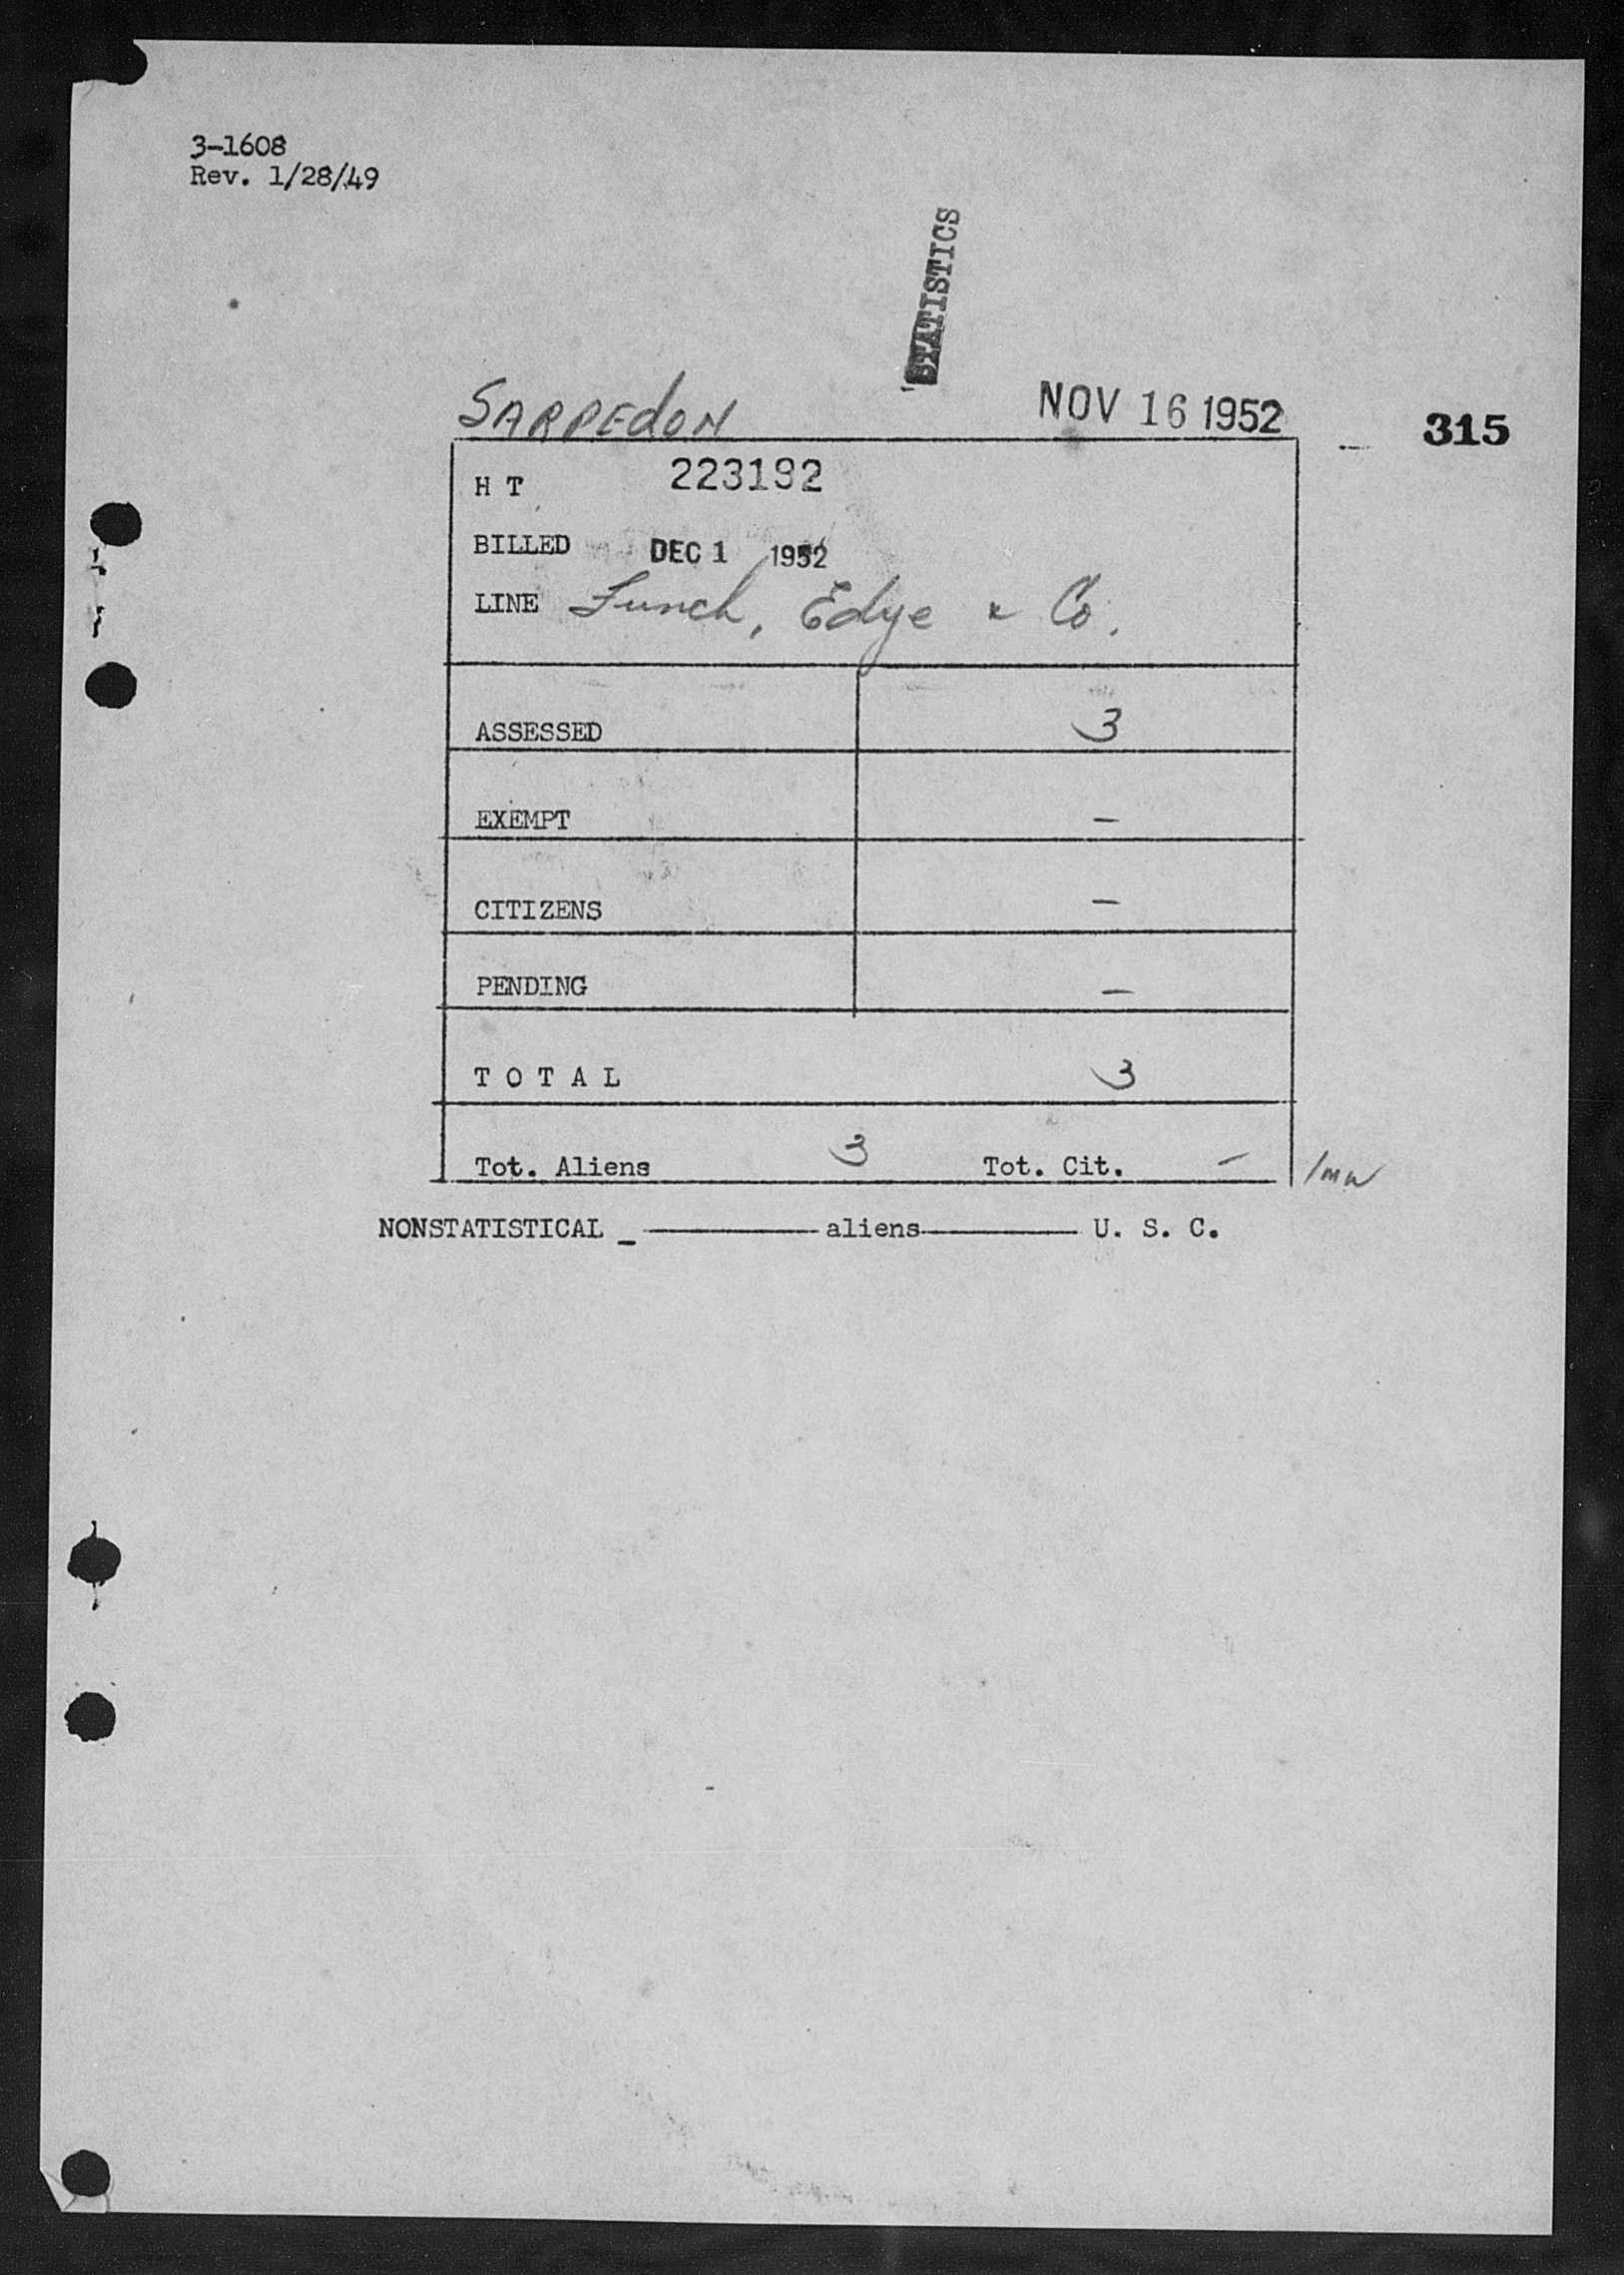 3-1608
Rev. 1/28/49
STATISTICS
SARPEdON NOV 16 1952 315
H T 223192
BILLED DEC 1 1952
LINE Funch, Edye & Co.
ASSESSED 3
EXEMPT –
CITIZENS –
PENDING –
T O T A L 3
Tot. Aliens 3 Tot. Cit. –
NONSTATISTICAL _ aliens U. S. C.